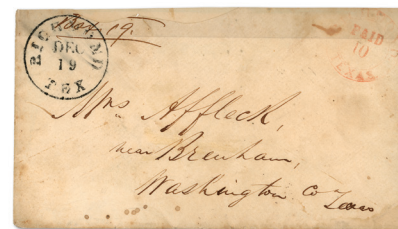 RICHMOND
DEC
19
TEX
PAID
10
Mrs Affleck,
near Brenham,
Washington Co
Texas